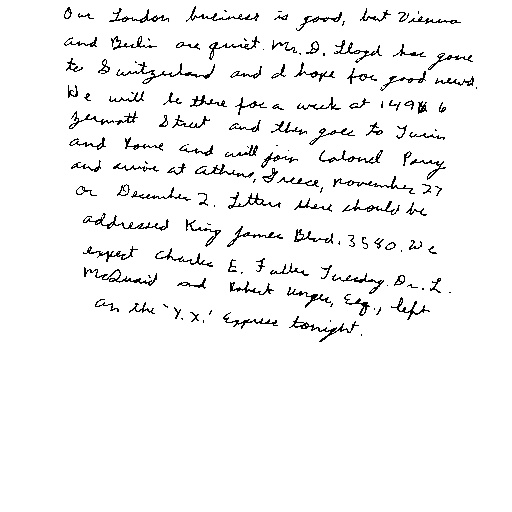 Our London business is good, but Vienna
and Berlin are quiet. Mr. D. Lloyd has gone
to Switzerland and I hope for good news.
He will be there for a week at 1496
Zermatt Street and then goes to Turin
and Rome and will join Colonel Parry
and arrive at Athens, Greece, November 27
or December 2. Letters there should be
addressed King James Blvd. 3580. We
expect Charles E. Fuller Tuesday. Dr. L.
McQuaid and Robert Unger, Esq., left
on the 'Y.X.' Express tonight.